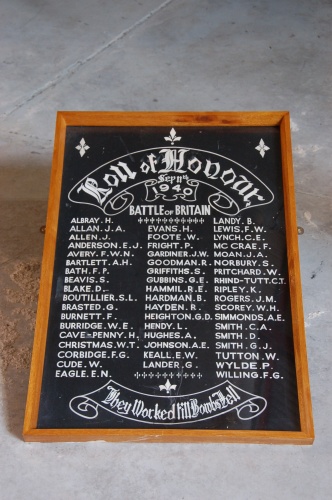 Roll of Honour
Sept 11th
1940
BATTLE OF BRITAIN
ALBRAY. H.
ALLAN. J.A.
ALLEN. J.
ANDERSON. E.J.
AVERY. F.W.N.
BARTLETT. A.H.
BATH. F.P.
BEAVIS. S.
BLAKE. D.
BOUTILLIER. S.L.
BRASTED. G.
BURNETT. F.
BURRIDGE. W.E.
CAVE-PENNY. H.
CHRISTMAS. W.T.
CORBIDGE. F.G.
CUDE. W.
EAGLE. E.N.
EVANS. H.
FOOTE. W.
FRIGHT. P.
GARDINER. J.W.
GOODMAN. R.
GRIFFITHS. S.
GUBBINS. G.E.
HAMMIL. R.E.
HARDMAN. B.
HAYDEN. R.
HEIGHTON. G.D.
HENDY. L.
HUGHES. A.
JOHNSON. A.E.
KEALL. E.W.
LANDER. G.
LANDY. B.
LEWIS. F.W.
LYNCH. C.E.
MC CRAE. F.
MOAN. J.A.
NORBURY. S.
PRITCHARD. W.
RHIND-TUTT. C.T.
RIPLEY. K.
ROGERS. J.M.
SCOREY. W.H.
SIMMONDS. A.E.
SMITH. C.A.
SMITH. D.
SMITH. G.J.
TUTTON. W.
WYLDE. P.
WILLING. F.G.
They Worked till Bombs Fell